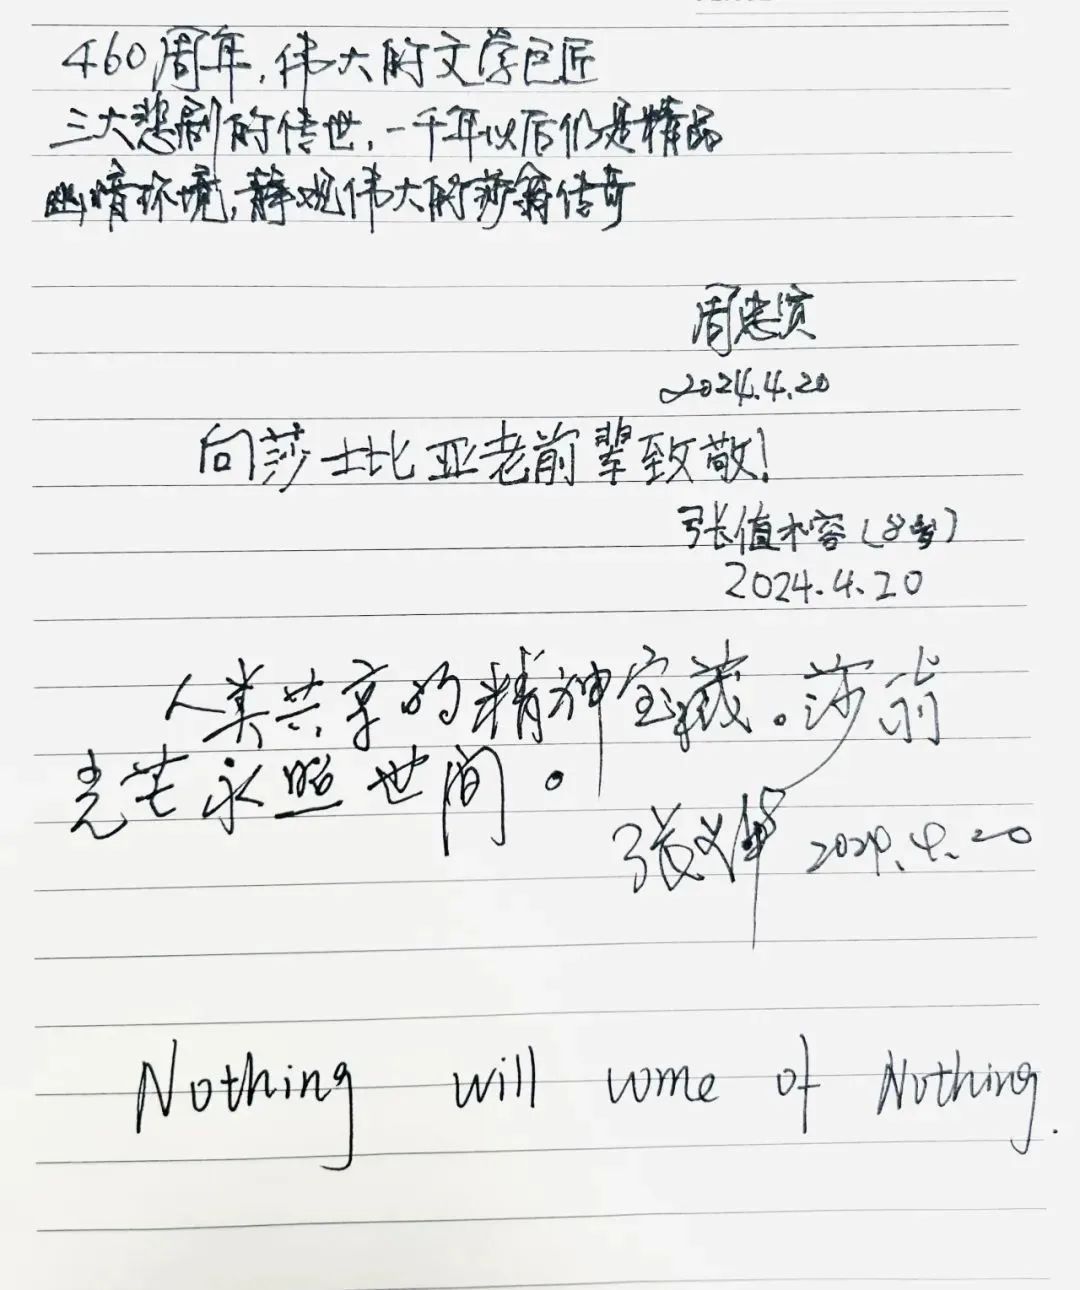 460周年,伟大的文学巨匠
三大悲剧的传世,一千年以后仍是精品
幽暗环境,静观伟大的莎翁传奇
周忠
2024.4.20
向莎士比亚老前辈致敬!
张值木容(8岁)
2024.4.20
人类共享的精神宝藏。莎翁
光芒永照世间。
张 2024.4.20
Nothing will come of Nothing.